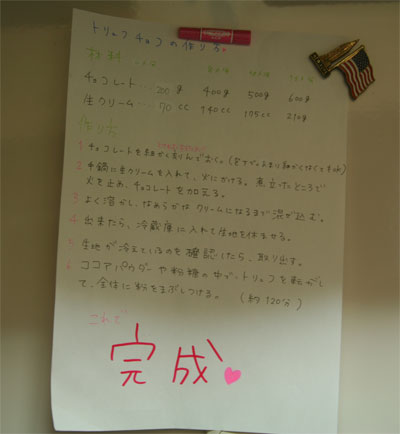 トリュフチョコの作り方
材料
チョコレート… 200g 400g 500g 600g
生クリーム… 70cc 140cc 175cc 210cc
作り方
1 チョコレートを細かくきざんでおく。
2 手鍋に生クリームを入れて、火にかける。煮立ったところで
火を止め、チョコレートを加える。
3 よく溶かし、なめらかな クリームになるまで 混ぜ込む。
4 出来たら、冷蔵庫に入れて生地を休ませる。
5 生地が冷えているのを確認したら、取り出す。
6 ココアパウダーや粉糖の中で、トリュフを転がし
て、全体に粉をまぶしつける。 (約120分)
これで
完成